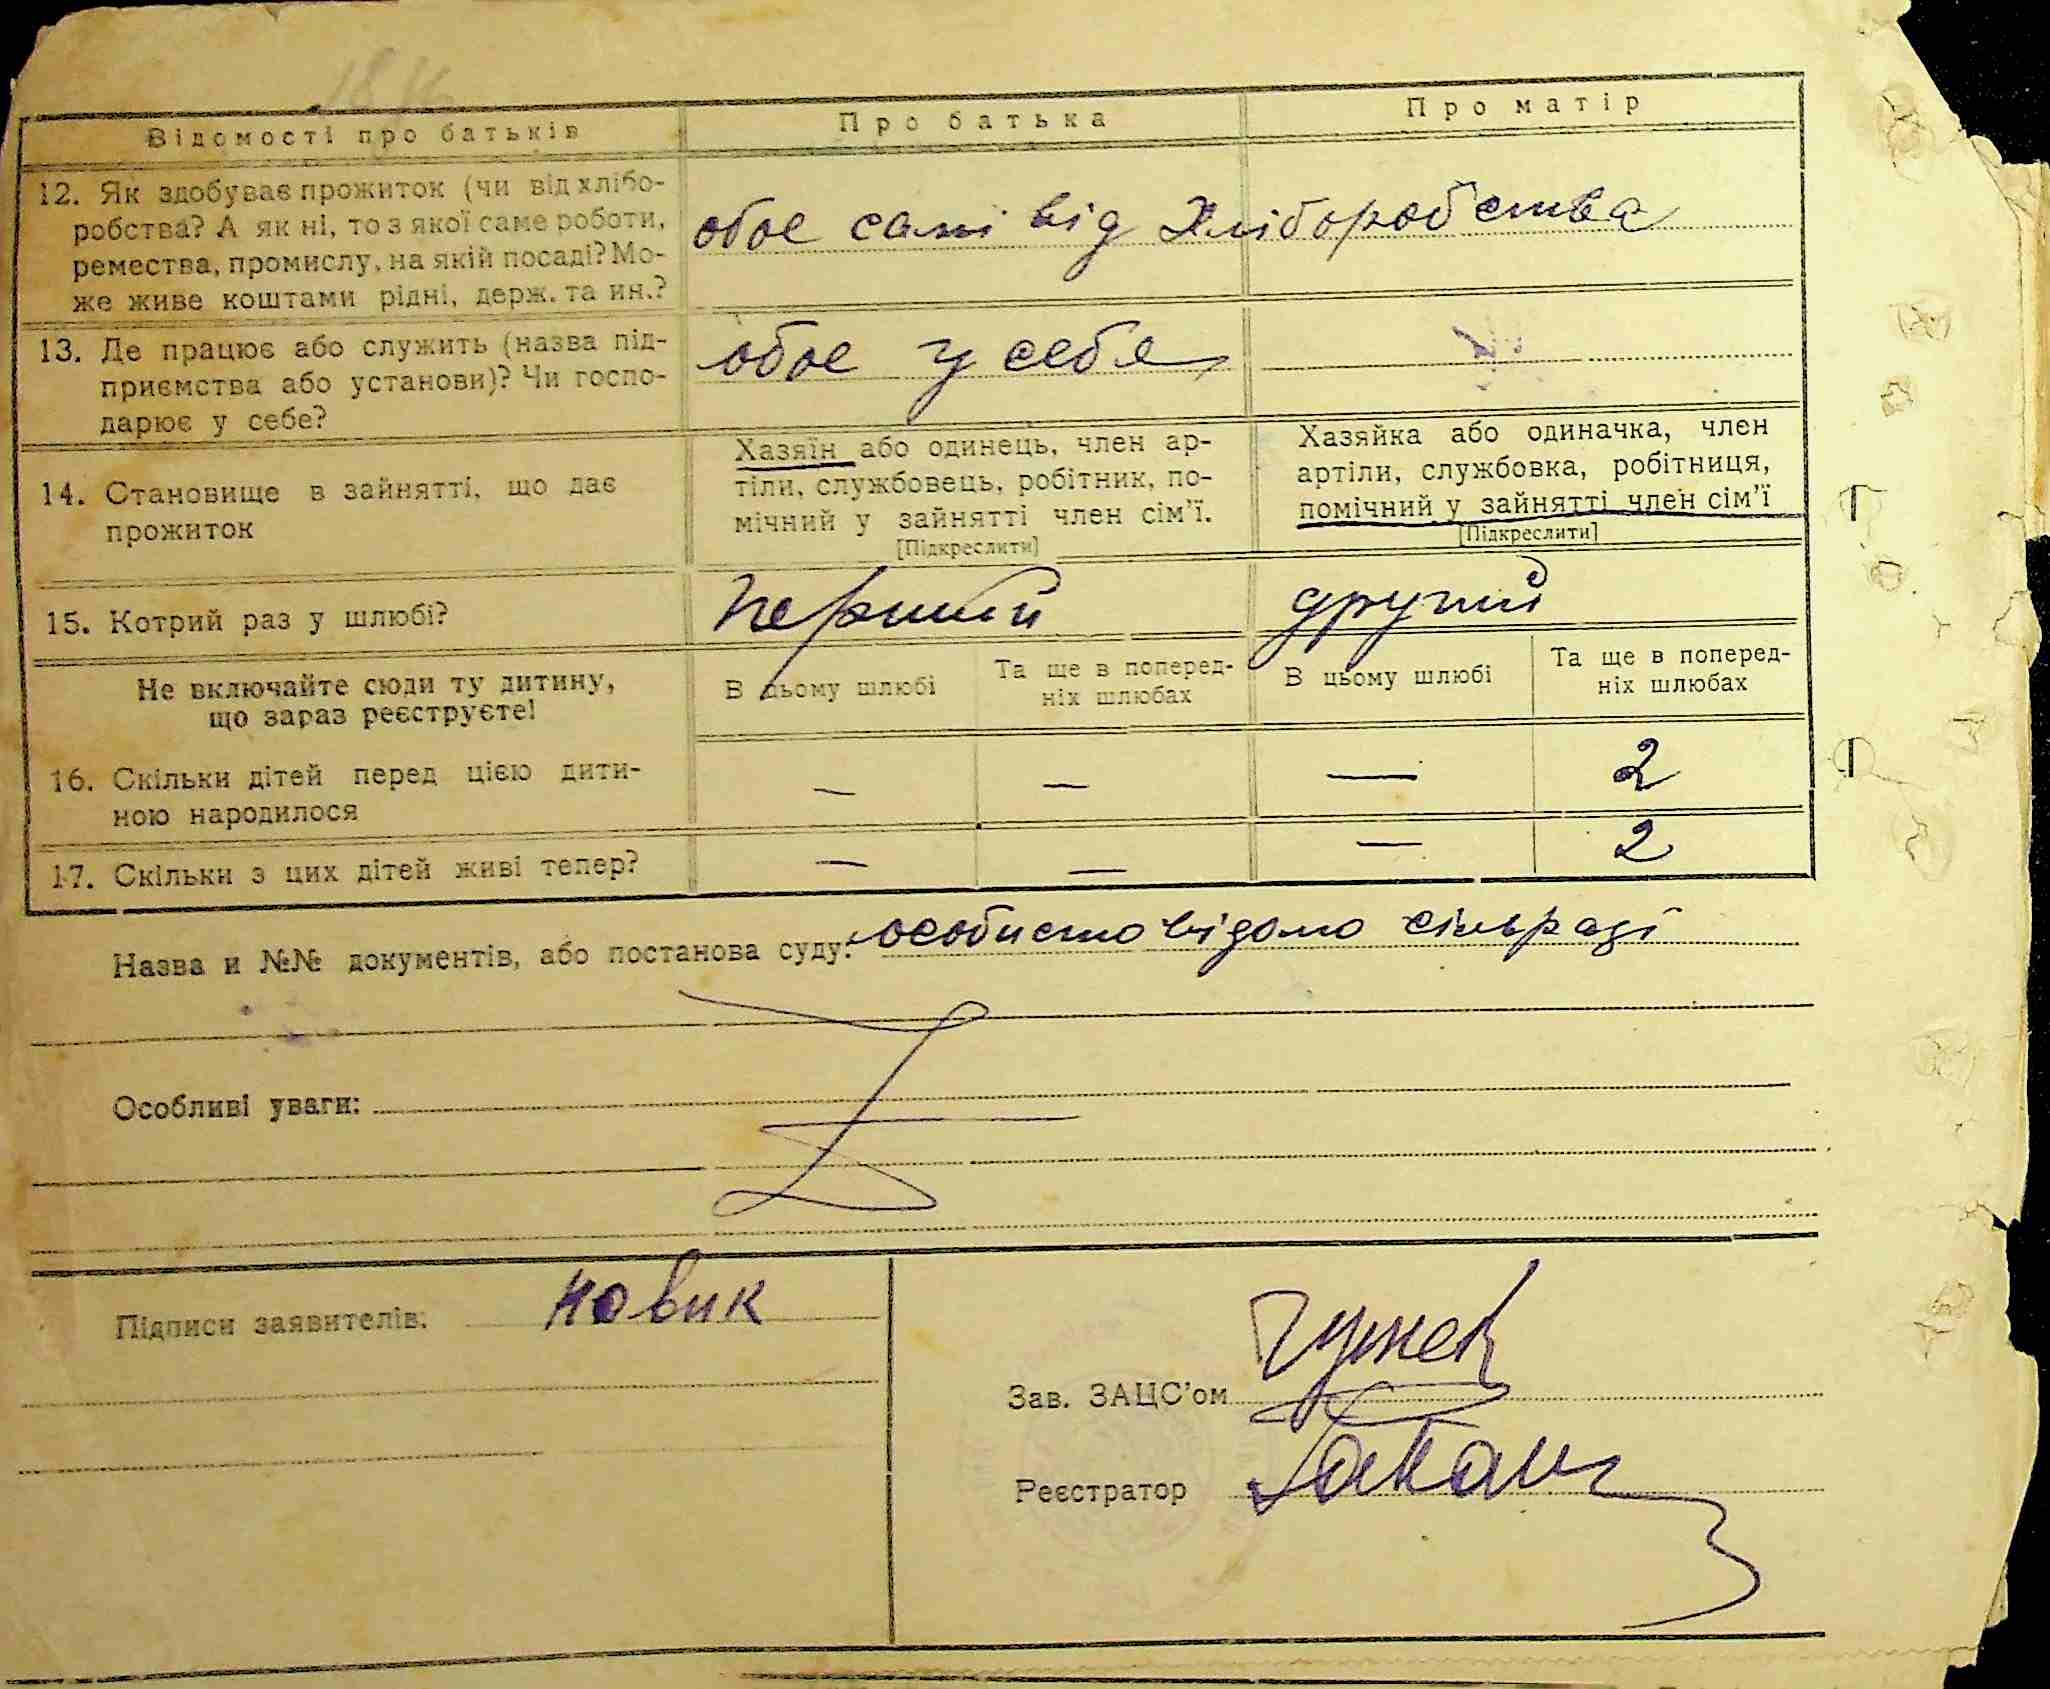 Відомості про батьків
Про батька
Про матір
12. Як здобуває прожиток (чи від хлібо-
робства? А як ні, то з якої саме роботи,
ремества, промислу, на якій посаді? Мо-
же живе коштами рідні, держ. та ин.?
обое самі від Хліборобства
13. Де працює або служить (назва під-
приємства або установи)? Чи госпо-
дарює у себе?
обое у себе
14. Становище в зайнятті, що дає
прожиток
Хазяїн або одинець, член ар-
тіли, службовець, робітник, по-
мічний у зайнятті член сім'ї.
[Підкреслити]
Хазяйка або одиначка, член
артіли, службовка, робітниця,
помічний у зайнятті член сім'ї
[Підкреслити]
15. Котрий раз у шлюбі?
перший
другий
Не включайте сюди ту дитину,
що зараз реєструєте!
В цьому шлюбі
Та ще в поперед-
ніх шлюбах
В цьому шлюбі
Та ще в поперед-
ніх шлюбах
16. Скільки дітей перед цією дити-
ною народилося
— — — 2
17. Скільки з цих дітей живі тепер?
— — — 2
Назва и №№ документів, або постанова суду: особисто відомо сільраді
Особливі уваги:
Підписи заявителів: новик
Зав. ЗАЦС'ом
Реєстратор